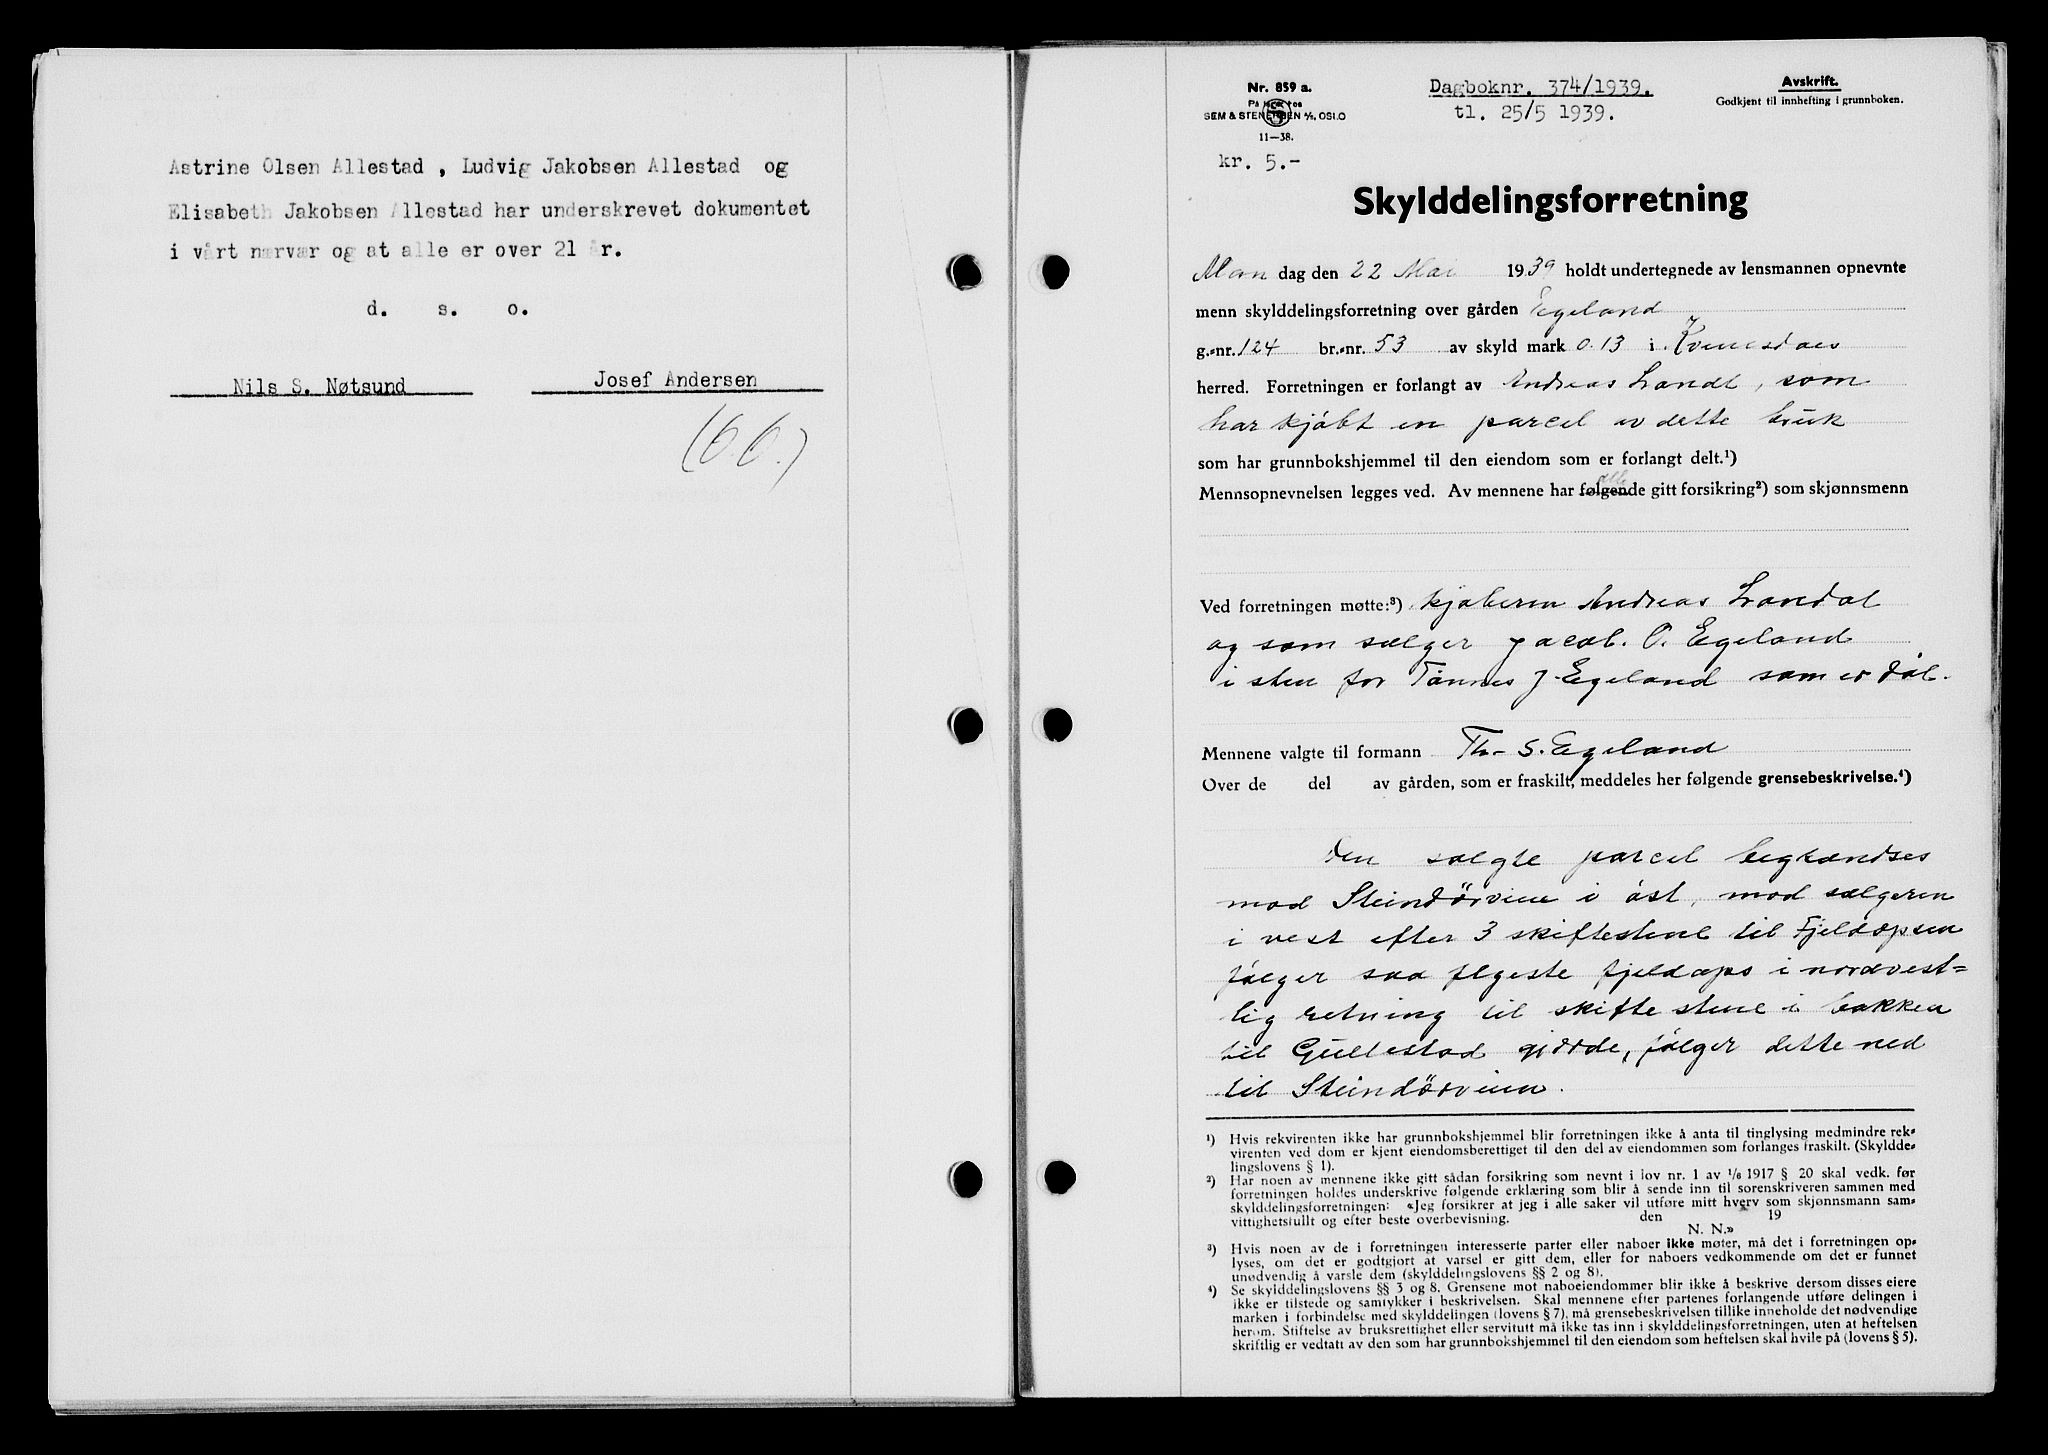 Astrine Olsen Allestad , Ludvig Jakobsen Allestad og
Elisabeth Jakobsen Allestad har underskrevet dokumentet
i vårt nærvær og at alle er over 21 år.
d. s. o.
Nils S. Nøtsund Josef Andersen
Nr. 859 a.
SEM & STENERSEN A/S, OSLO
11—38.
kr. 5.-
Dagboknr. 374/1939.
tl. 25/5 1939.
Avskrift.
Godkjent til innhefting i grunnboken.
Skylddelingsforretning
Man dag den 22 Mai 1939 holdt undertegnede av lensmannen opnevnte
menn skylddelingsforretning over gården Egeland
g.-nr. 124 br.-nr. 53 av skyld mark 0.13 i Kvinesdal
herred. Forretningen er forlangt av Andreas Landal, som
har kjøbt en parcel av dette bruk
som har grunnbokshjemmel til den eiendom som er forlangt delt.¹)
Mennsopnevnelsen legges ved. Av mennene har følgende alle gitt forsikring²) som skjønnsmenn
Ved forretningen møtte:³) kjøberen Andreas Landal
og som sælger Jacob. O. Egeland
i sten for Tønnes J. Egeland som er død.
Mennene valgte til formann Th. S. Egeland
Over de del av gården, som er fraskilt, meddeles her følgende grensebeskrivelse.⁴)
Den solgte parcel begrændses
mod Steindørveien i øst, mod sælgeren
i vest efter 3 skiftestene til Fjeldopsen
følger saa fjeldops i nordvest=
lig retning til skifte stene i bakken
til Gullestad gjærde, følger dette ned
til Steindørveien.
¹) Hvis rekvirenten ikke har grunnbokshjemmel blir forretningen ikke å anta til tinglysing medmindre rek-
virenten ved dom er kjent eiendomsberettiget til den del av eiendommen som forlanges fraskilt. (Skyldde-
lingslovens § 1).
²) Har noen av mennene ikke gitt sådan forsikring som nevnt i lov nr. 1 av 1/6 1917 § 20 skal vedk. før
forretningen holdes underskrive følgende erklæring som blir å sende inn til sorenskriveren sammen med
skylddelingsforretningen: «Jeg forsikrer at jeg i alle saker vil utføre mitt hverv som skjønnsmann sam-
vittighetsfullt og efter beste overbevisning. den 19
N. N.»
³) Hvis noen av de i forretningen interesserte parter eller naboer ikke møter, må det i forretningen op-
lyses, om det er godtgjort at varsel er gitt dem, eller for naboers vedkommende om det er funnet
unødvendig å varsle dem (skylddelingslovens §§ 2 og 8).
⁴) Se skylddelingslovens §§ 3 og 8. Grensene mot naboeiendommer blir ikke å beskrive dersom disses eiere
ikke er tilstede og samtykker i beskrivelsen. Skal mennene efter partenes forlangende utføre delingen i
marken i forbindelse med skylddelingen (lovens § 7), må grensebeskrivelsen tillike inneholde det nødvendige
herom. Stiftelse av bruksrettighet eller servitutt må ikke tas inn i skylddelingsforretningen, uten at heftelsen
skriftlig er vedtatt av den som har grunnbokshjemmel til den eiendom som heftelsen skal hvile på (lovens § 5).